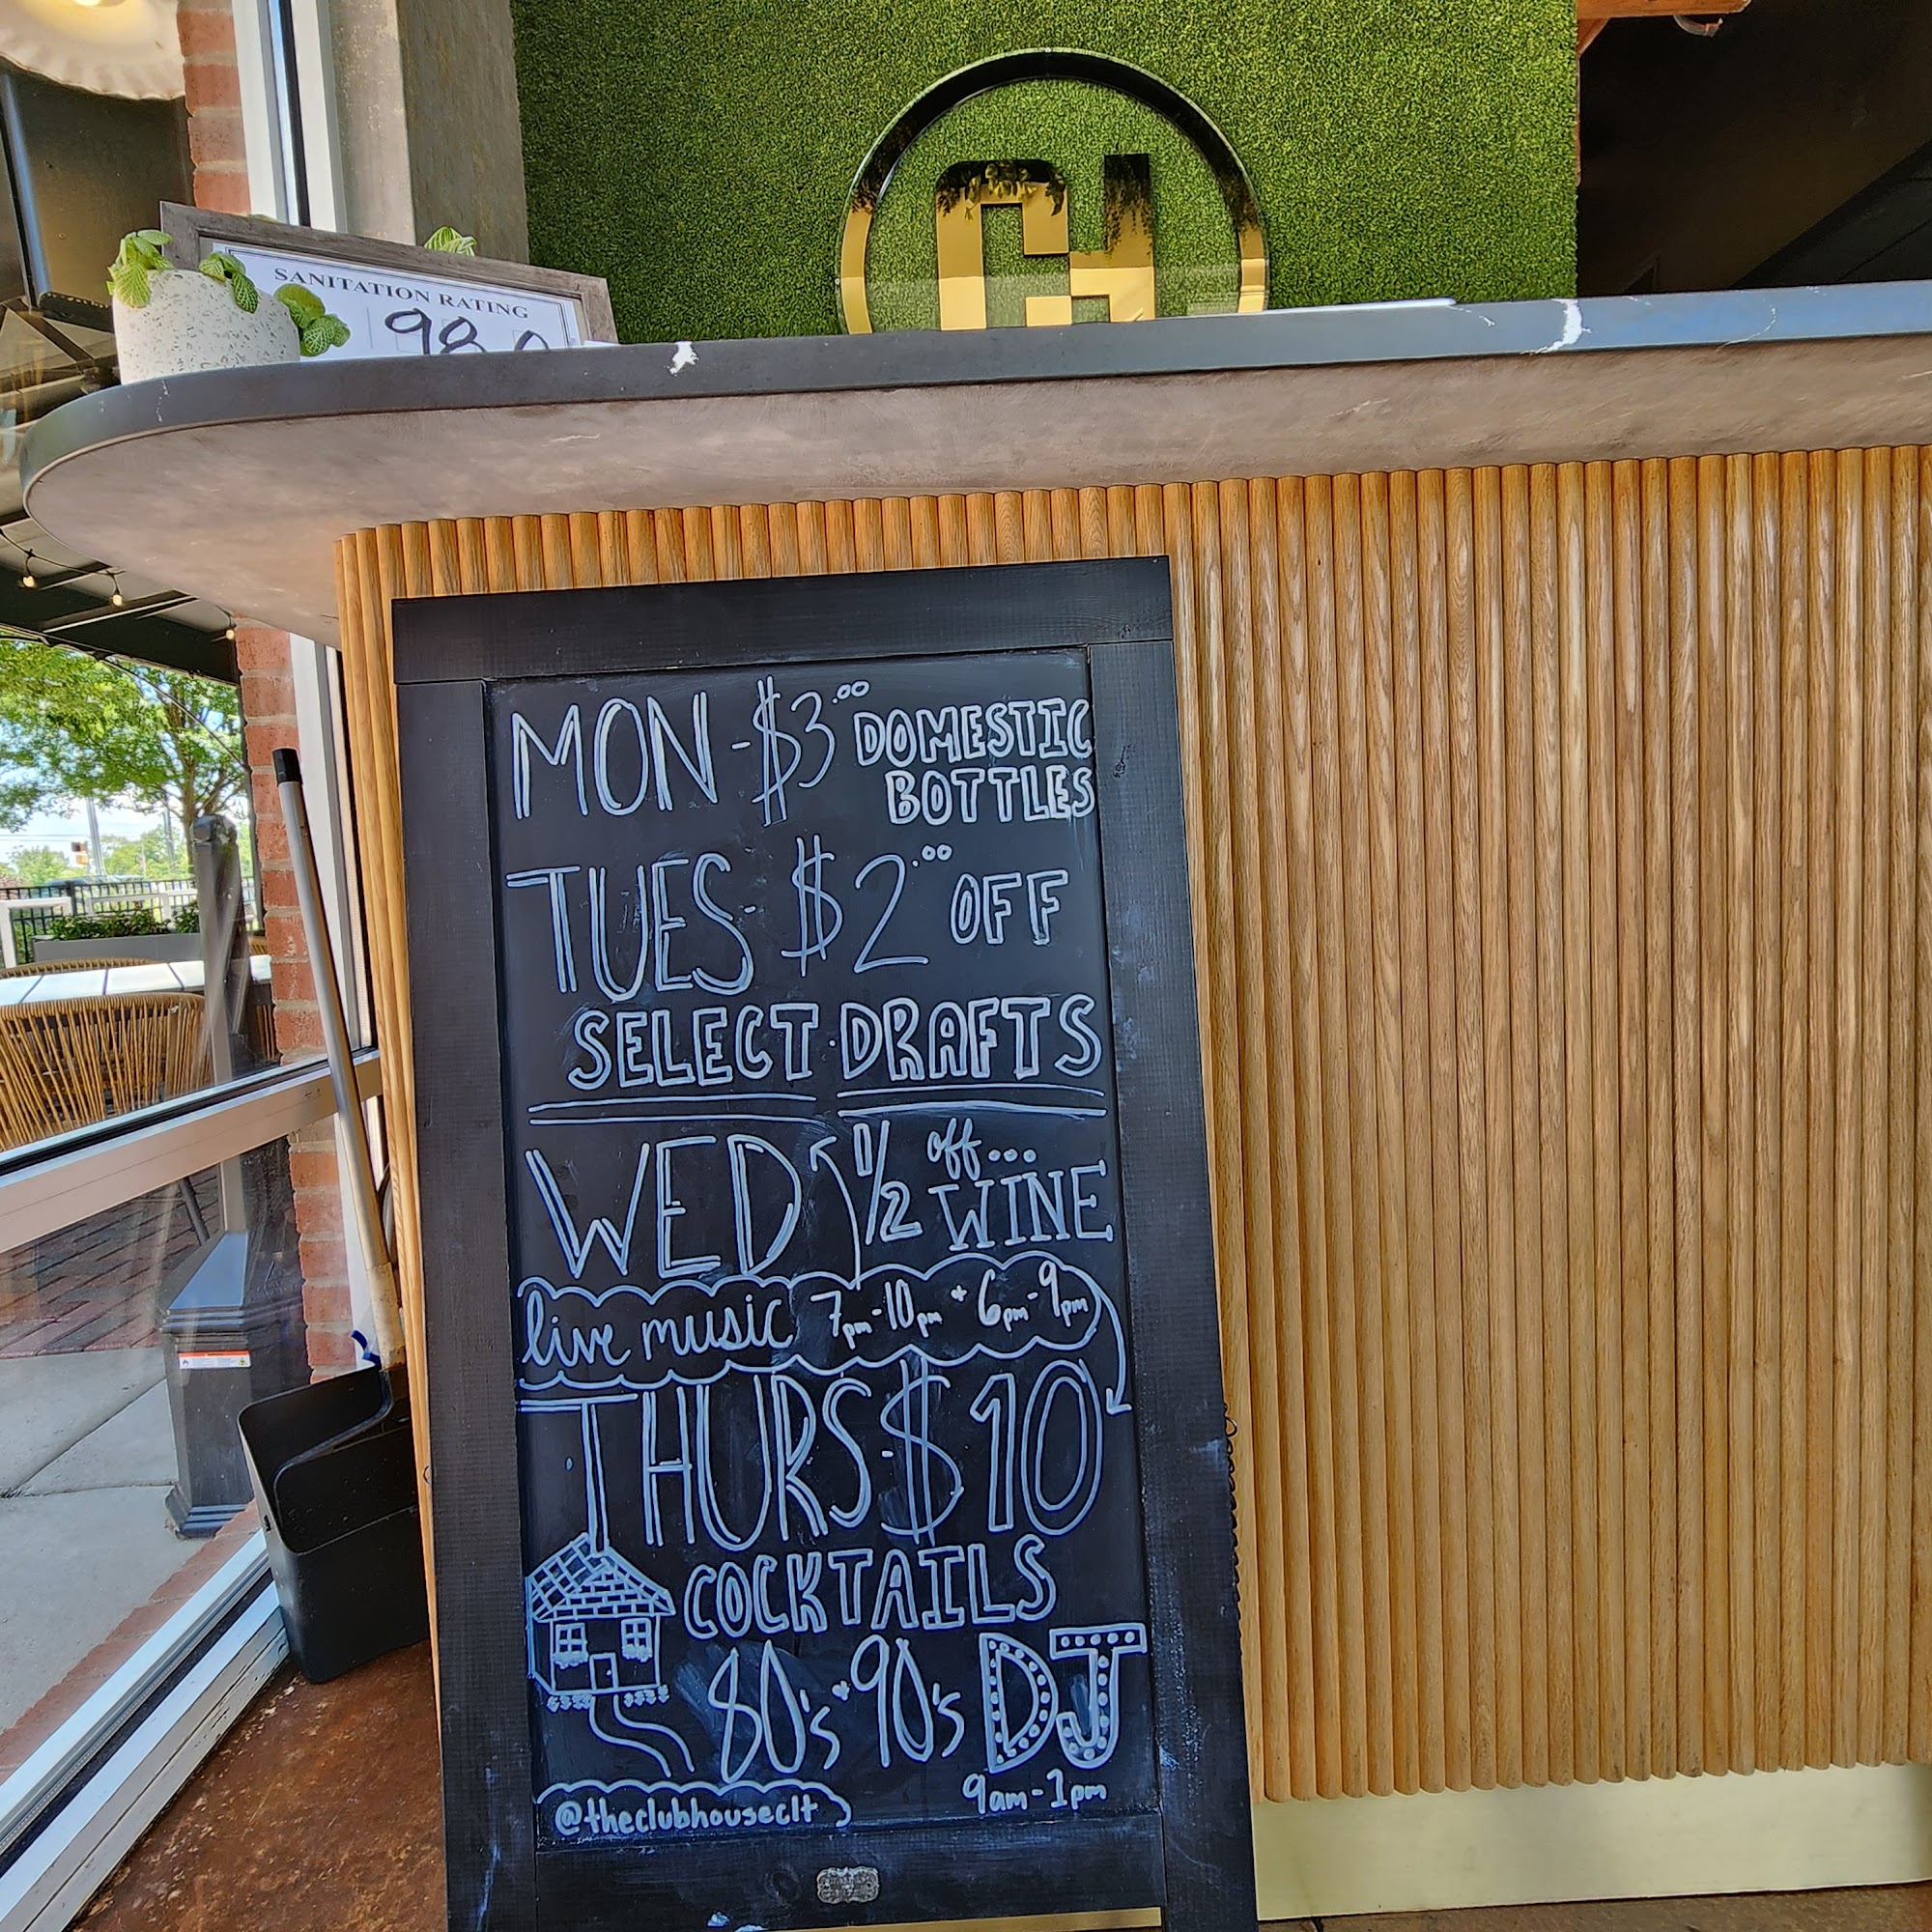 CH
SANITATION RATING
98.0
MON - $3.00 DOMESTIC
BOTTLES
TUES - $2.00 OFF
SELECT DRAFTS
WED 1/2 off... WINE
live music 7pm-10pm + 6pm-9pm
THURS - $10
COCKTAILS
80's + 90's DJ
9am-1pm
@theclubhouseclt